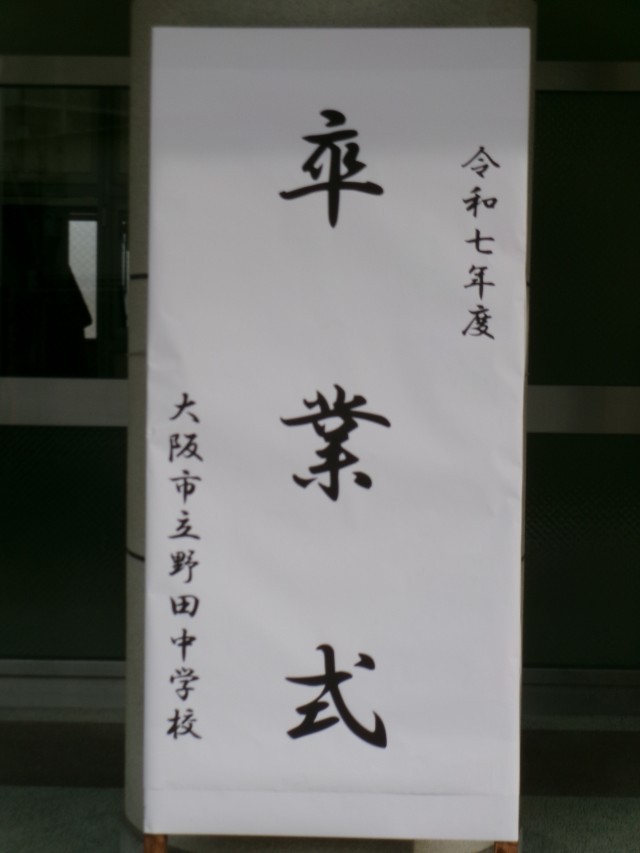 令和七年度
卒業式
大阪市立野田中学校